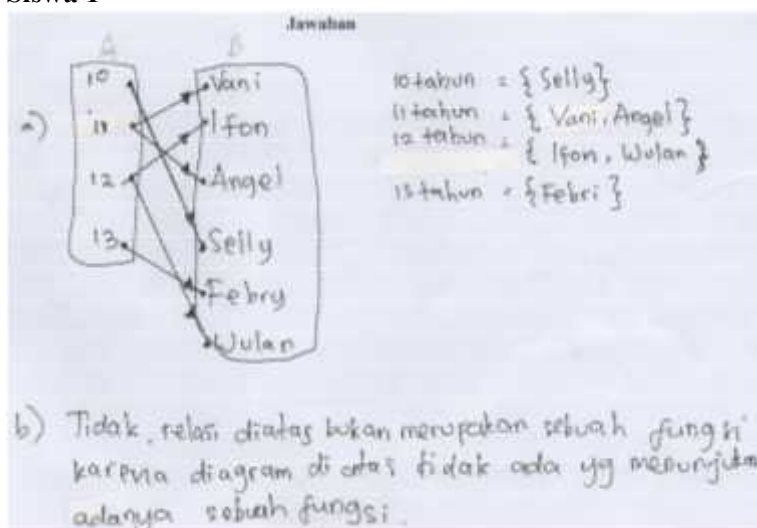 Siswa 1
Jawaban
A B
a)
10
11
12
13
Vani
Ifon
Angel
Selly
Febry
Wulan
10 tahun = {Selly}
11 tahun = {Vani, Angel}
12 tahun = {Ifon, Wulan}
13 tahun = {Febri}
b) Tidak, relasi diatas bukan merupakan sebuah fungsi
karena diagram di atas tidak ada yg menunjukan
adanya sebuah fungsi.